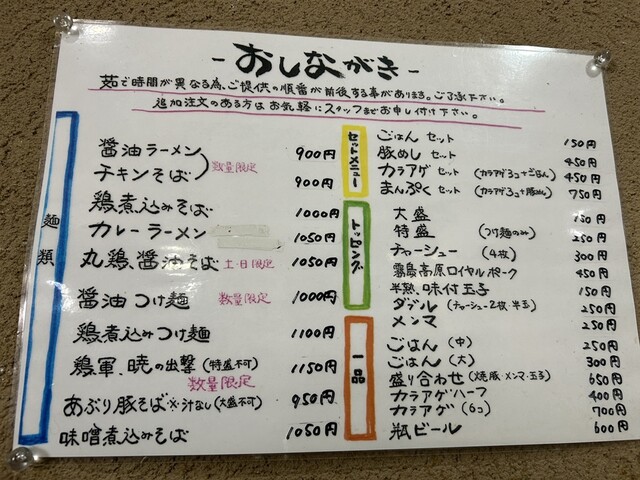 -おしながき-
茹で時間が異なる為、ご提供の順番が前後する事があります。ご了承下さい。
追加注文のある方はお気軽にスタッフまでお申し付け下さい。
麺類
醤油ラーメン 900円
チキンそば 900円
数量限定
鶏煮込みそば 1000円
カレーラーメン 1050円
丸鶏、醤油そば 土・日限定 1050円
醤油つけ麺 数量限定 1000円
鶏煮込みつけ麺 1100円
鶏軍、暁の出撃 (特盛不可) 1150円
数量限定
あぶり豚そば ※汁なし(大盛不可) 950円
味噌煮込みそば 1050円
セットメニュー
ごはん セット 150円
豚めし セット 450円
カラアゲ セット (カラアゲ3コ+ごはん) 450円
まんぷく セット (カラアゲ3コ+豚めし) 750円
トッピング
大盛 150円
特盛 (つけ麺のみ) 250円
チャーシュー (4枚) 300円
霧島高原ロイヤルポーク 450円
半熟、味付玉子 150円
ダブル (チャーシュー2枚・半玉) 250円
メンマ 250円
一品
ごはん (中) 250円
ごはん (大) 300円
盛り合わせ (焼豚・メンマ・玉子) 650円
カラアゲハーフ 400円
カラアゲ (6コ) 700円
瓶ビール 600円